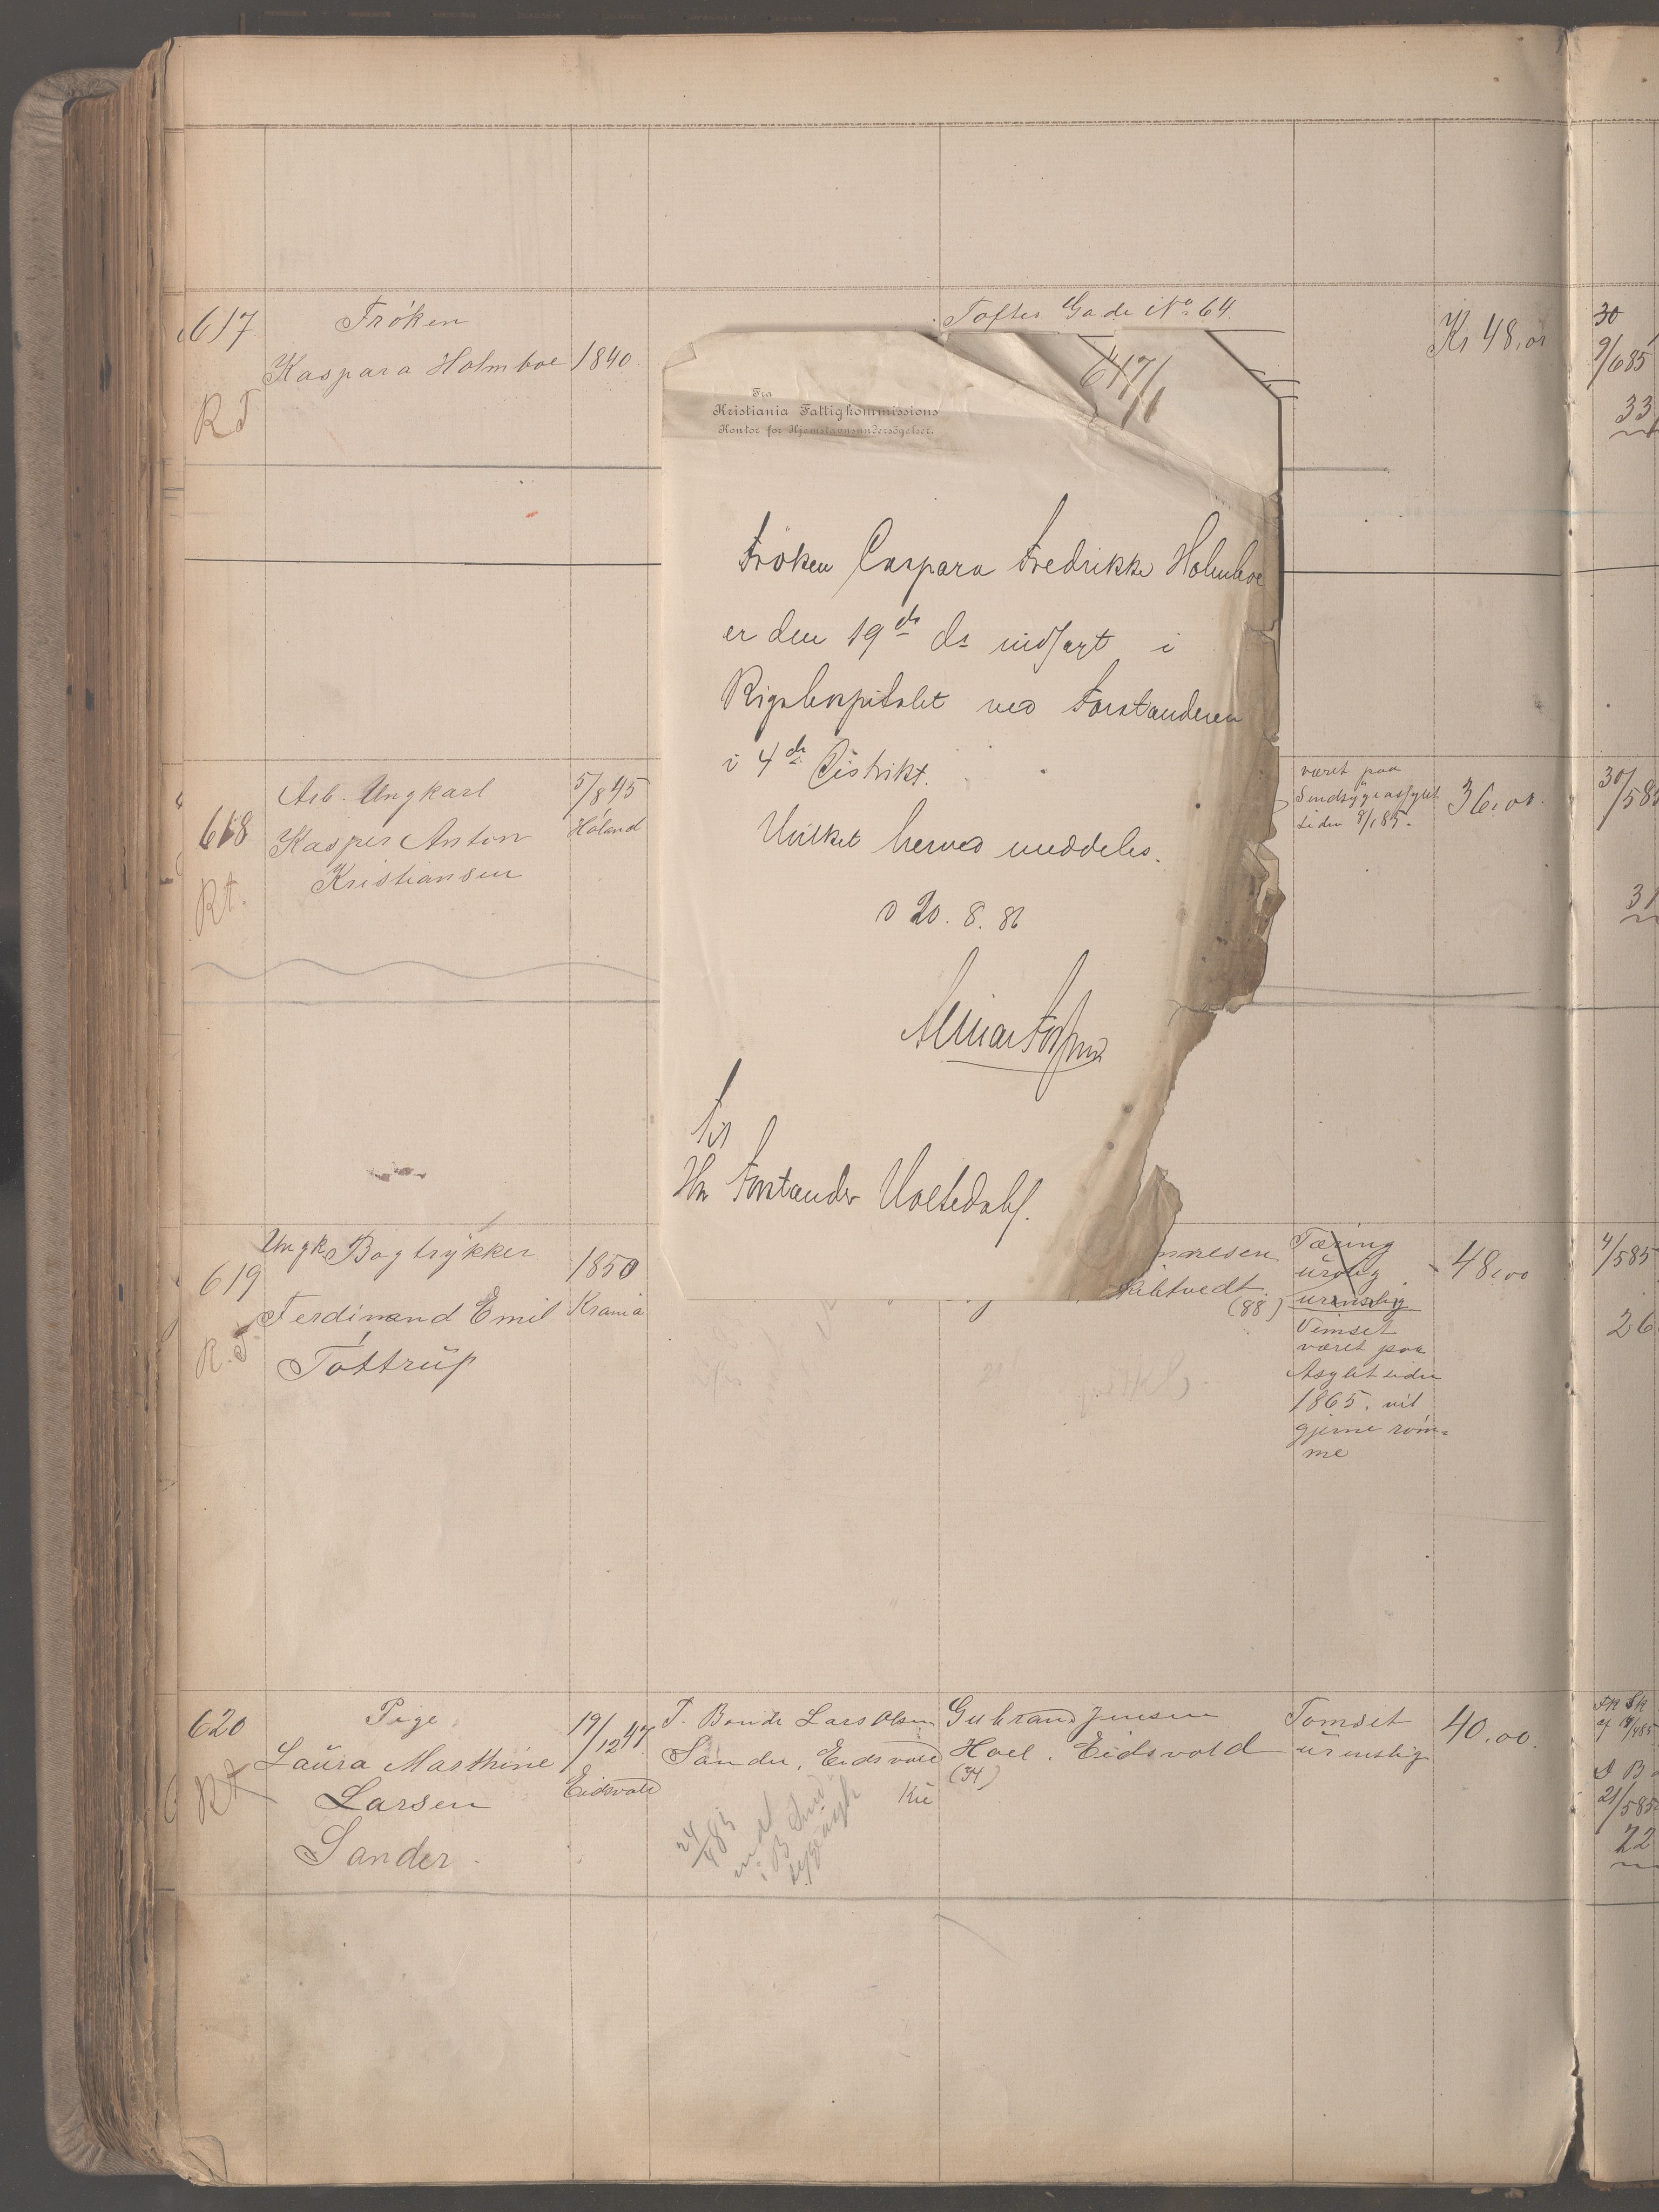 617
Frøken
Kaspara Holmboe
1840.
Toftes Gade No 64.
Kr 48,00
30
9/6 85
33
Fra
Kristiania Fattigkommissions
Kontor for Hjemstavnsundersøgelser.
617/
Frøken Caspara Fredrikke Holmboe
er den 19de ds indlagt i
Rigshospitalet ved Forstanderen
i 4de Distrikt.
Hvilket herved meddeles.
D 20. 8. 86
Til
Hr Forstander Holtsdahl.
618
Arb. Ungkarl
Kasper Anton
Kristiansen
5/8 45
Høland
Rt.
været paa
Sindsygeasylet
siden 9/1 85.
36,00.
30/5 85
31
619
Ungk Bogtrykker
Ferdinand Emil
Tøttrup
1850
Krania
R.T.
(88)
Tæring
urolig
urenslig
Vimset
været paa
Asylet siden
1865. vil
gjerne røm=
me
48,00
4/5 85
26
620
Pige
Laura Marthine
Larsen
Sander
19/12 47
Eidsvold
Rt
F. Bonde Lars Olsen
Sander, Eidsvold
Gulbrand Jensen
Hoel. Eidsvold
(34)
24/4 85
indl
i B Sind
sygeasyl
Tomset
urenslig
40,00.
21/5 85
22